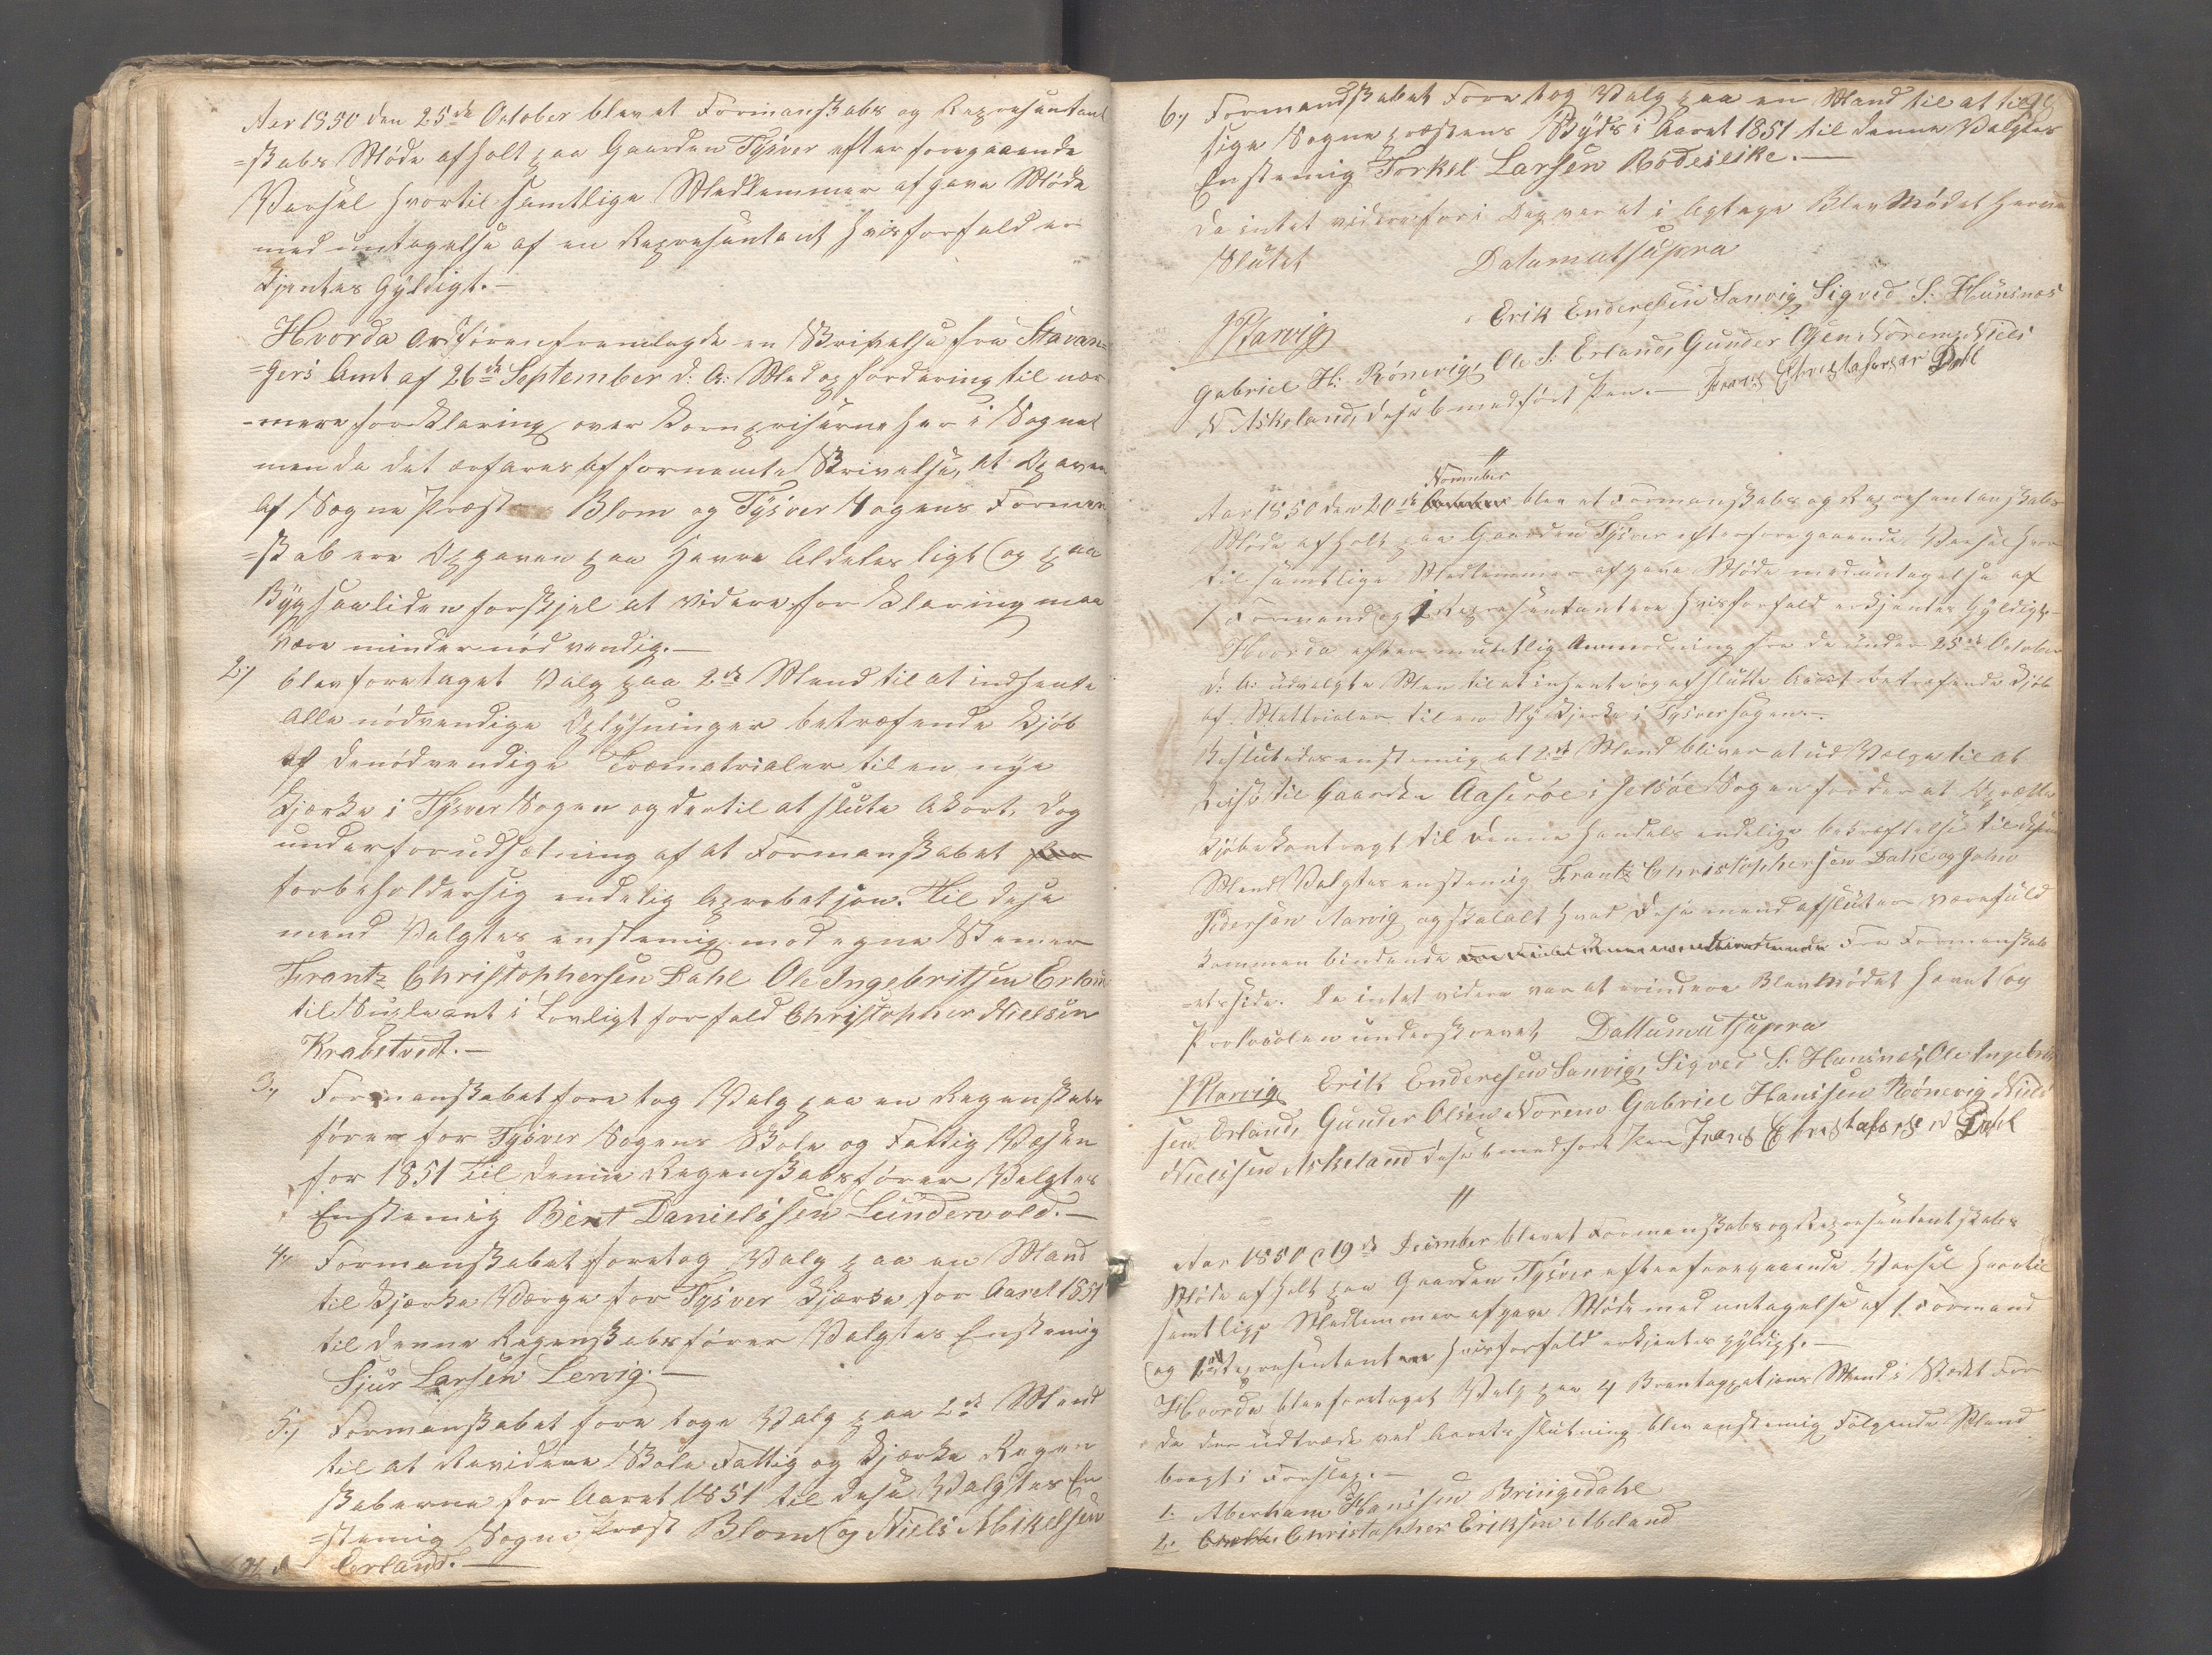 Aar 1850 den 25de October blev et Formanskabs og Representant
=skabs Møde afholt paa Gaarden Tÿsver efter foregaaende
Varsel hvortil samtlige Medlemmer afgave Møde
med untagelse af en Representant hvis forfald er
kjentes Gÿldigt.—
Hvorda Ordføren fremlagde en Skrivelse fra Stavan=
=gers Amt af 26de September d: A: Med opfordering til nær
=mere forklaring over Kornpriserne her i Sognet
men da det erfares af fornemte Skrivelse, at Opaven
af Sogne Præst Blom og Tÿsver Sogens Forman
=skab ere Opgaven paa Havre Aldeles ligt og paa
Bÿg saa liden forskjel at videre for klaring maa
være minder nødvendig.—
2,) blev foretaget Valg paa 2de Mend til at indhente
Alle nødvendige Oplÿsninger betræfende Kjøb
af de nødvendige Træmatrialer til en nÿe
Kjærke i Tÿsver Sogen og dertil at slute Akort, dog
under forudsætning af at Formanskabet
forbeholder sig endelig Aprobatsjon. Til dese
mend Valgtes enstemig mod egne Stemer
Frantz Christophersen Dahl Ole Ingebritsen Erland
til Supleant i Lovligt forfald Christopher Nielsen
Krabetvedt.—
3., Formanskabet fore tog Valg paa en Regenskabs
fører for Tÿsver Sogens Skole og Fattig Væsen
for 1851 til denne Regenskabsfører Valgtes
Enstemig Bent Danielssen Lundervold.—
4,, Formanskabet foretog Valg paa en Mand
til Kjærke Værge for Tÿsver Kjærke for Aaret 1851
til denne Regenskabsfører Valgtes Enstemig
Sjur Larsen Lervig.—
5., Formanskabet fore toge Valg paa 2de Mend
til at Revidere Skole Fattig og Kjærke Regen
skaberne for Aaret 1851 til dese Valgtes En
=stemig Sogne Præst Blom og Niels Mikelsen
Erland.—
6., Formandskabet Fore tog Valg paa en Mand til at
sige Sogne præstens Skÿds i Aaret 1851 til denne Valgtes
Enstemig Torkel Larsen Bødeieike.—
da intet videre for i Dag var at i Agtage Blev Mødet herved
Slutet Datumutsupra
Erik Enderesen Sanvig Sigved S: Hunsnæs
PAarvig
Gabriel H: Rønevig, Ole I: Erland, Gunder Olsen Norem, Niels
N Askeland, dese 6 med ført Pen.— Frans Christofersen Dahl
〃
November
Aar 1850 den 20de blev et Formanskabs og Representanskabs
Møde afholt paa Gaarden Tÿsver efter foregaaende Varsel hvor
til samtlige Medlemmer afgave Møde med untagelse af
1 Formand og 1 Representantere hvis forfald erkjentes Gÿldigt.—
Hvorda efter mundtlig Anmodning fra de under 25de October
d: A: udvalgte Men til at inhente og afslutte Acort betræfende Kjøb
af Mattrialer til en Nÿ Kjerke i Tÿsver Sogen.—
Beslutedes enstemig at 2de Mend bliver at ud Vælge til at
reise til Gaarden Aaserøe i Jelsøe Sogen for der at Oprætte
Kjøbekontragt til denne Handels endelige bekræftelse til disse
Mend Valgtes enstemig Frantz Christophersen Dahl og John
Pedersen Aarvig og skal alt hvad Dese mend afsluter være fuld
kommen bindende Fra Formanskab
=ets side. Da intet videre var at erindre Blev Mødet hævet og
Protocolen underskrevet Dattumutsupra
PAarvig Erik Enderesen Sanvig, Sigved S: Hunsnæs, Ole Ingebrit
sen Erland, Gunder Olsen Norem Gabriel Hanssen Rønevig Niels
Nielssen Askeland dese 6 med ført Pen Frans Christofersen Dahl
〃
Aar 1850 d 19de December blev et Formanskabs og Representantskabs
Møde afholt paa Gaarden Tÿsver efter foregaaende Varsel hvortil
samtlige Medlemmer afgave Møde med untagelse af 1. Formand
og Representanten hvis forfald erkjentes gÿldigt.—
Hvorda blev foretaget Valg paa 4 Brantaxsatjons Mend i Stedet For
de der udtræde ved Aarets slutning blev enstemig Følgende Mend
bragt i Forslag.—
1. Aberham Hanssen Bringedahl
2. Christopher Eriksen Abeland